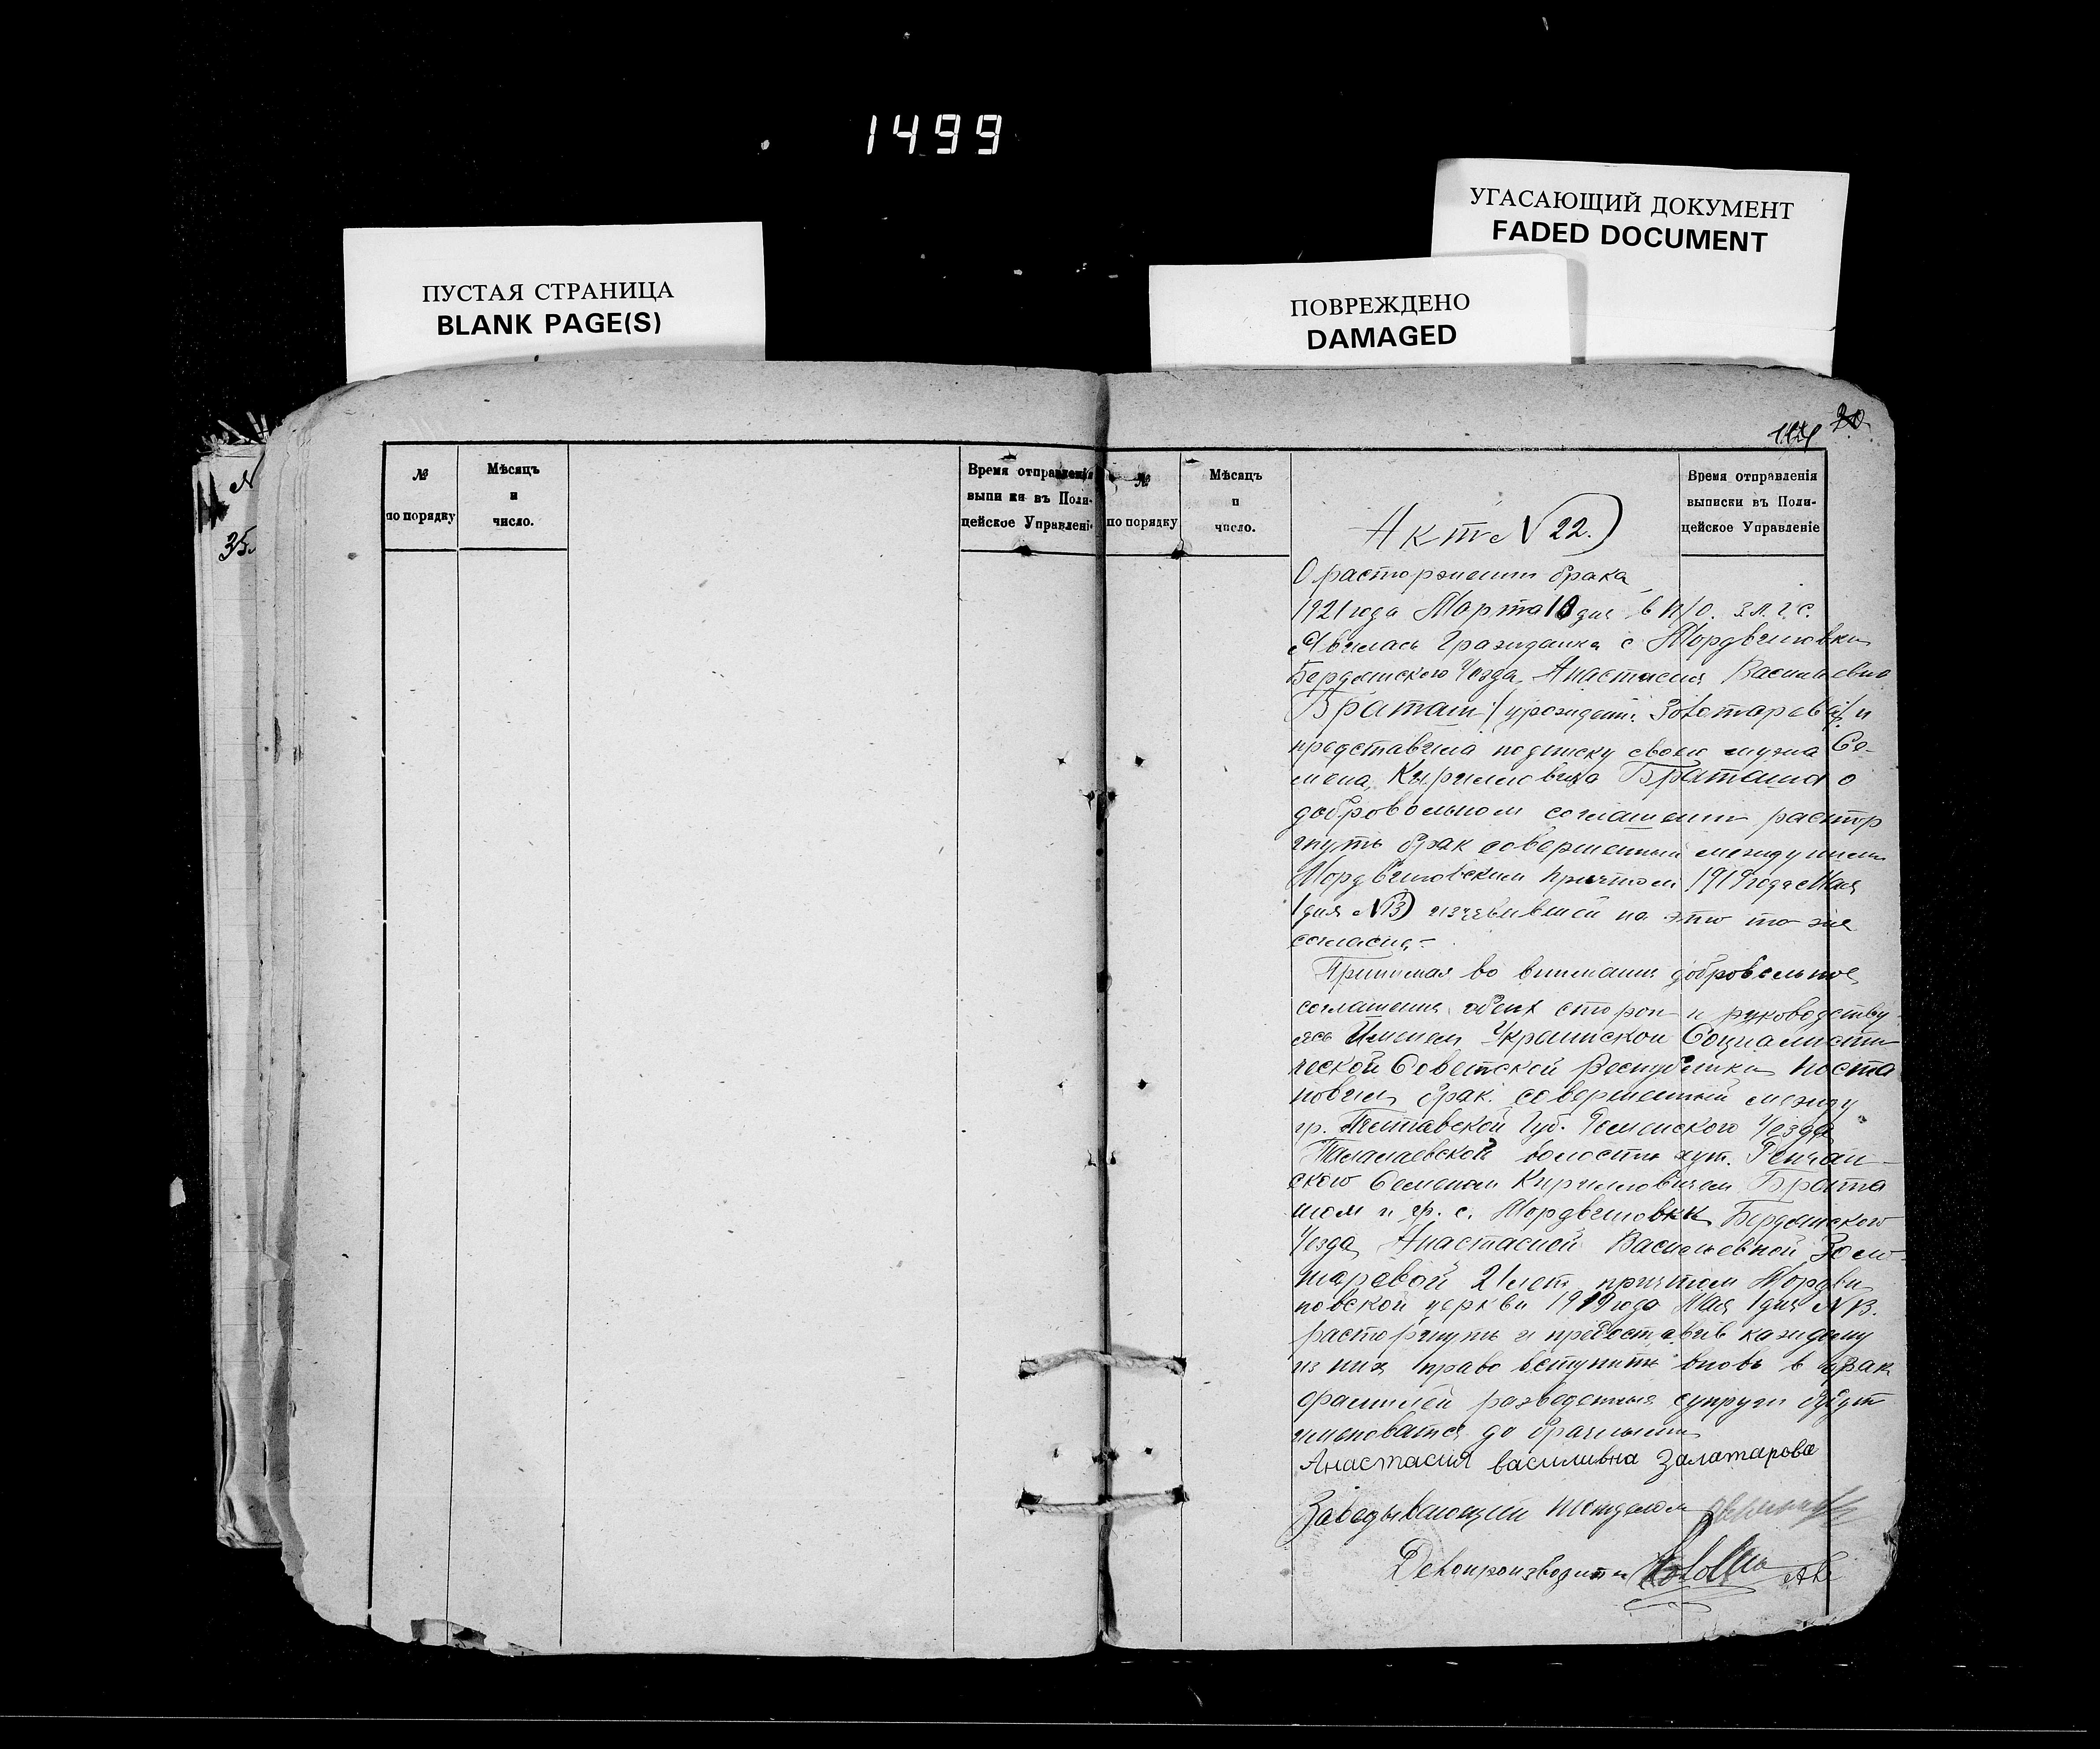 1499
УГАСАЮЩИЙ ДОКУМЕНТ
FADED DOCUMENT
ПУСТАЯ СТРАНИЦА
BLANK PAGE(S)
ПОВРЕЖДЕНО
DAMAGED
35.
№
по порядку
Мѣсяцъ
и
число.
Время отправленія
выписки въ Поли-
цейское Управленіе
№
по порядку
Мѣсяцъ
и
число.
Время отправленія
выписки въ Поли-
цейское Управленіе
Акт №22.)
О расторжении брака
1921 года Марта 10 дня в п/о. з.а.г.с.
Явилась Гражданка с Мордвиновки
Бердянского Уезда Анастасия Васильевна
Браташ /урожден. Золотарева/ и
представила подписку своего мужа Се-
мена Кирилловича Браташа о
добровольном соглашении растор
гнуть брак совершенный между ними
Мордвиновским причтом 1919 года Мая
1 дня №13) изъявившей на это то же
согласие.-
Принимая во внимания добровольное
соглашения обеих сторон и руководству-
ясь Именем Украинской Социалисти
ческой Советской Республики поста
новил брак совершенный между
гр. Полтавской Губ. Роменского Уезда
Талалаевской волости хут.
ского Семеном Кирилловичем Брата
шом и гр. с. Мордвиновки Бердянского
Уезда Анастасией Васильевной Золо-
таревой 21 лет причтом Мордви
новской церкви 1919 года Мая 1 дня №13.
расторгнуть и предоставив каждому
из них право вступить вновь в брак
фамилией разведенные супруги будут
именоватся до брачными
Анастасия василивна Залатарова
Заведывающий п/отделом
Делопроизводитель